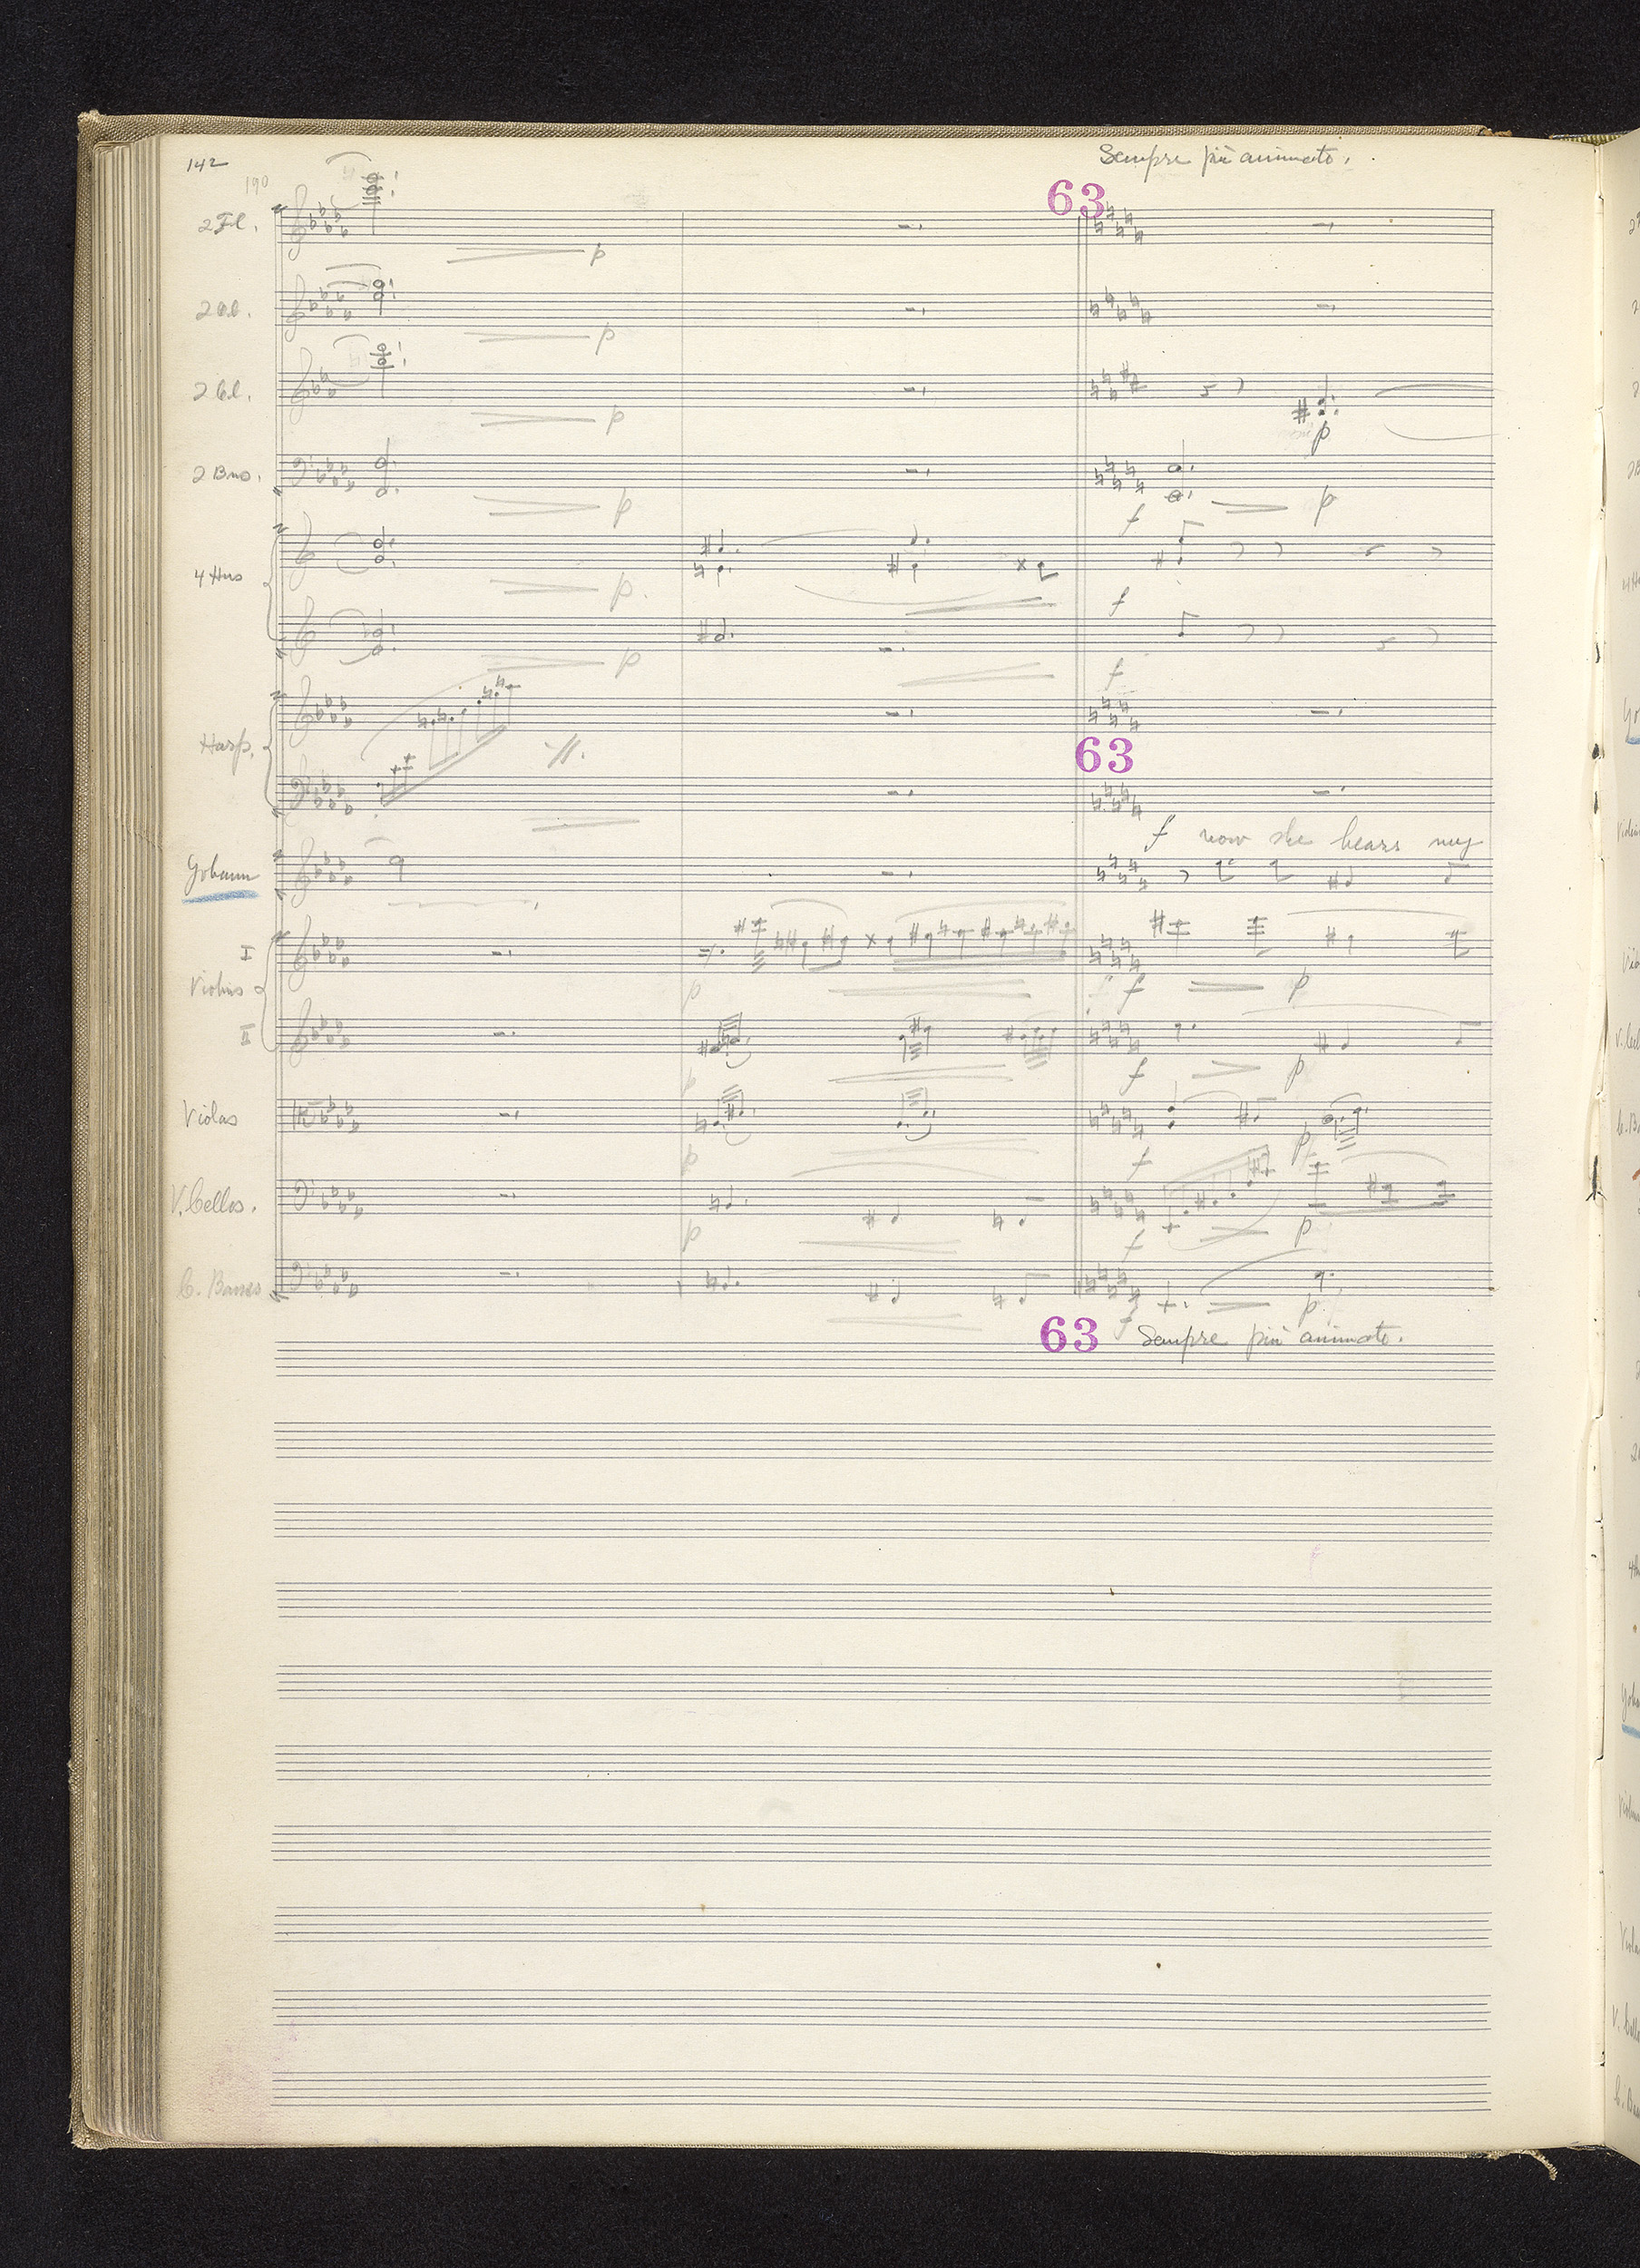 142
190
Sempre più animato.
63
2 Fl.
p
2 Ob.
p
2 Cl.
p
p
2 Bns.
p
f
p
4 Hns
p.
f
p
f
Harp.
63
f now she hears my
Johann
I
Violins
p
f
p
II
p
f
p
Violas
p
f
p
V. Cellos.
p
f
p
C. Basses
f
p
63 Sempre più animato.